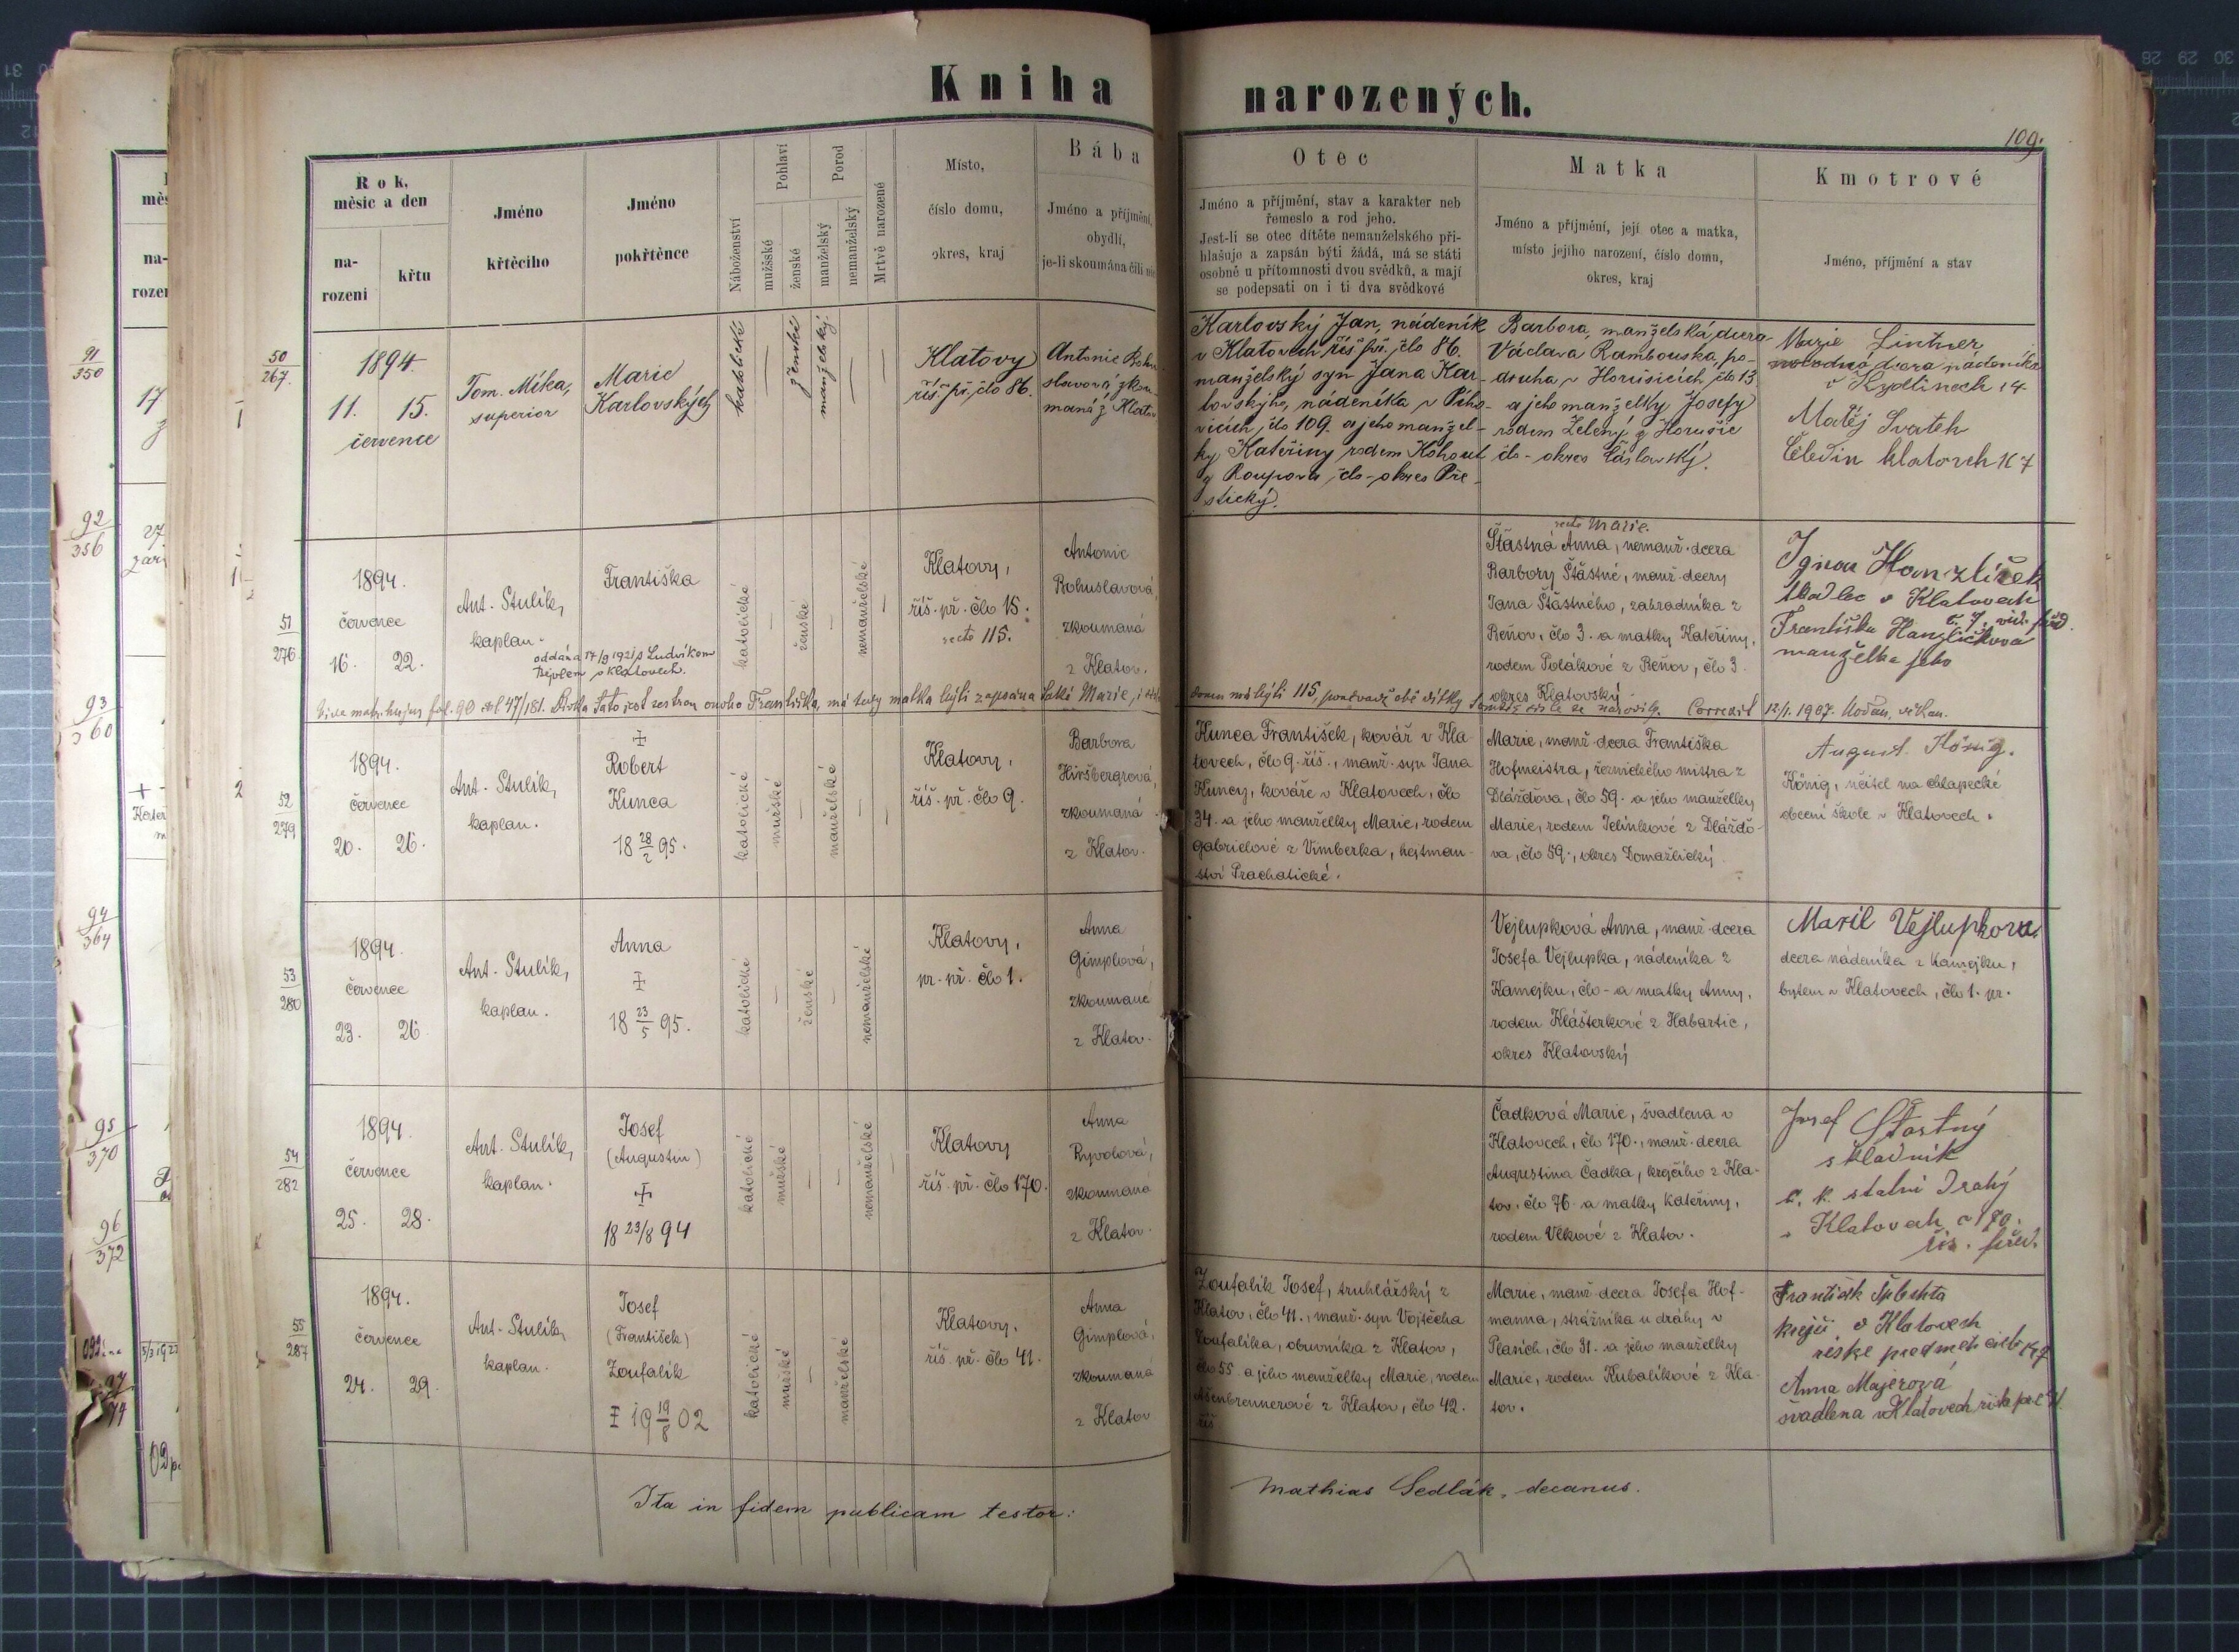 Kniha narozených.
109.
Rok, měsíc a den
narození
křtu
Jméno křtěcího
Jméno pokřtěnce
Náboženství
Pohlaví
mužské
ženské
Porod
manželský
nemanželský
Mrtvě narozené
Místo,
číslo domu,
okres, kraj
Bába
Jméno a příjmění,
obydlí,
je-li skoumána čili
Otec
Jméno a příjmění, stav a karakter neb
řemeslo a rod jeho.
Jest-li se otec dítěte nemanželského při-
hlašuje a zapsán býti žádá, má se státi
osobně u přítomnosti dvou svědků, a mají
se podepsati on i ti dva svědkové
Matka
Jméno a příjmění, její otec a matka,
místo jejího narození, číslo domu,
okres, kraj
Kmotrové
Jméno, příjmění a stav
50
267.
1894.
11. 15.
července
Tom. Míka,
superior
Marie
Karlovských
katolické
ženské
manželský
Klatovy
říš. př. člo 86.
Antonie
zkou-
maná z
Karlovský Jan, nádeník
v Klatovech říš. př. člo 86.
manželský syn Jana Kar-
lovských, nádeníka v
člo 109. a jeho manžel-
ky Kateřiny rodem Kohout
z Roupova člo - okres Pře-
štický.
Barbora, manželská dcera
Václava Rambouska, po-
druha v Horušicích, člo 13
a jeho manželky Josefy
rodem Zelený z Horušic
člo - okres Čáslavský.
Marie Lintner
dcera nádeníka
Matěj Svatek
51
276.
1894.
července
16. 22.
Ant. Stulík,
kaplan.
Františka
oddána 17/9 1921 s Ludvíkem
v Klatovech.
katolické
ženské
nemanželské
Klatovy,
říš. př. člo 15.
recte 115.
Antonie
Bohuslavová
zkoumaná
z Klatov.
recte Marie.
Šťastná Anna, nemanž. dcera
Barbory Šťastné, manž. dcery
Jana Šťastného, zahradníka z
Beňov, člo 3. a matky Kateřiny,
rodem Polákové z Beňov, člo 3.
okres Klatovský.
Ignac Hanzlíček
tkadlec v Klatovech
Františka Hanzličkova
manželka jeho
fol. 90 47/181. Dívka tato jest sestrou onoho Františka, má tedy matka býti zapsána také Marie,
má býti 115, poněvadž obě dítky se narodily. Correxit 12/1. 1907.
52
279
1894.
července
20. 26.
Ant. Stulík,
kaplan.
Robert
Kunca
18 28/2 95.
katolické
mužské
manželské
Klatovy,
říš. př. člo 9.
Barbora
Hiršbergrová,
zkoumaná
z Klatov.
Kunca František, kovář v Kla-
tovech, člo 9. říš., manž. syn Jana
Kuncy, kováře v Klatovech, člo
34. a jeho manželky Marie, rodem
Gabrielové z Vimberka, hejtman-
ství Prachatické.
Marie, manž. dcera Františka
Hofmeistra, řeznického mistra z
Dlážďova, člo 59. a jeho manželky
Marie, rodem Jelínkové z Dláždo-
va, člo 59., okres Domažlický.
August König.
König, učitel na chlapecké
obecní škole v Klatovech.
53
280
1894.
července
23. 26.
Ant. Stulík,
kaplan.
Anna
18 23/5 95.
katolické
ženské
nemanželské
Klatovy,
pr. př. člo 1.
Anna
Gimplová,
zkoumaná
z Klatov.
Vejlupková Anna, manž. dcera
Josefa Vejlupka, nádeníka z
Kamejku, člo - a matky Anny,
rodem Klášterkové z Habartic,
okres Klatovský
Marie Vejlupkova
dcera nádeníka z Kamejku,
bytem v Klatovech, člo 1. pr.
54
282
1894.
července
25. 28.
Ant. Stulík,
kaplan.
Josef
(Augustin)
18 23/8 94
katolické
mužské
nemanželské
Klatovy
říš. př. člo 170.
Anna
Ryvolová,
zkoumaná
z Klatov.
Čadková Marie, švadlena v
Klatovech, člo 170., manž. dcera
Augustina Čadka, krejčího z Kla-
tov. člo 76. a matky Kateřiny,
rodem Vlkové z Klatov.
Josef Šťastný
skladník
c. k. statní Drahý
v Klatovech č 170.
říš. před.
55
287
1894.
července
24. 29.
Ant. Stulík,
kaplan.
Josef
(František)
Zoufalík
19 19/8 02
katolické
mužské
manželské
Klatovy.
říš. př. člo 41.
Anna
Gimplová,
zkoumaná
z Klatov
Zoufalík Josef, truhlářský z
Klatov, člo 41., manž. syn Vojtěcha
Zoufalíka, obuvníka z Klatov,
člo 55. a jeho manželky Marie, rodem
Ašenbrennerové z Klatov, člo 42.
říš.
Marie, manž. dcera Josefa Hof-
manna, strážníka u dráhy v
Plasích, člo 31. a jeho manželky
Marie, rodem Kubalíkové z Kla-
tov.
František
krejčí v Klatovech
Anna Majerová
švadlena v Klatovech
Ita in fidem publicam testor: Mathias Sedlák, decanus.
91
350
92
356
93
360
94
364
95
370
96
372